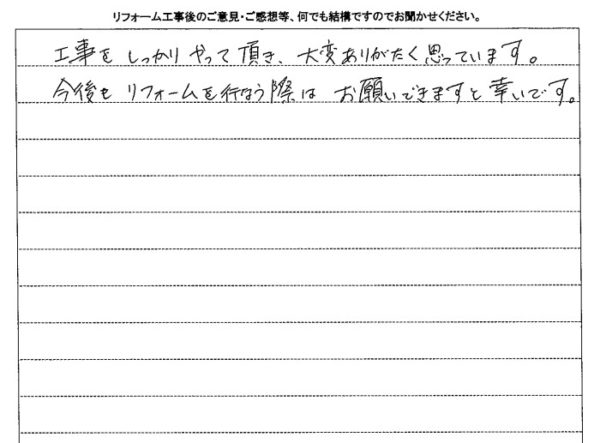 リフォーム工事後のご意見・ご感想等、何でも結構ですのでお聞かせください。
工事をしっかりやって頂き、大変ありがたく思っています。
今後もリフォームを行なう際はお願いできますと幸いです。